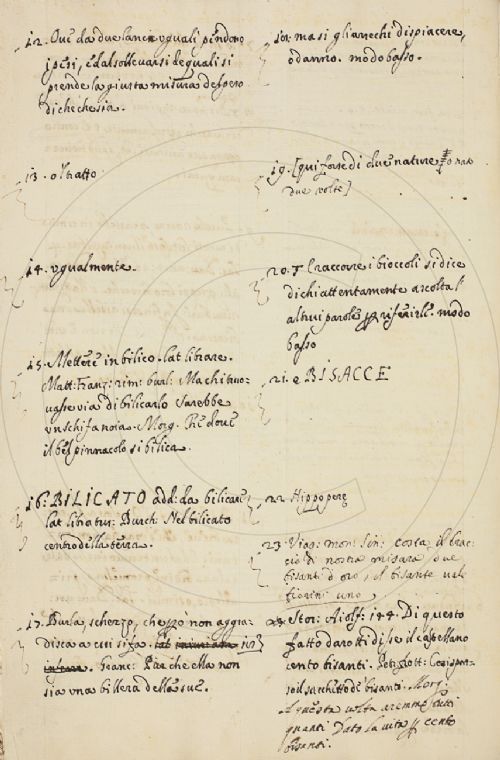 12. Ove da due lance uguali pendono
i pesi, e dal sollevarsi de quali si
prende la giusta misura del peso
di che che sia.
13. o tratto
14. ugualmente.
15. Mettere in bilico. lat. librare.
Matt: Franz: rim: burl: Ma chi tro-
vasse via di bilicarlo Sarebbe
un schifanoia. Morg. Più dove
il bel pinnacolo si bilica.
16. BILICATO add: da bilicare
lat. libratus. Burch: Nel bilicato
centro della terra.
17. Burla, scherzo, che non aggra-
disca a cui si fa.
Franc: che ella non
sia una billera delle sue.
18. masi gli arrechi dispiacere,
o danno. modo basso.
19. [qui forse di due nature
due volte]
20. Raccorre i bioccoli si dice
di chi attentamente ascolta l'
altrui parole riferirle. modo
basso
21. e BISACCE
22. Hippopere
23. Viag: mon: Sin: costa il brac-
cio di nostra misura due
bisanti d'oro, il bisante vale
fiorini uno
24. Stor: Aiolf: 144. Di questo
fatto darotti disse il castellano
cento bisanti.
il sacchetto de bisanti. Morg:
A questa volta aremme tutti
quanti Dato la vita cento
bisanti.